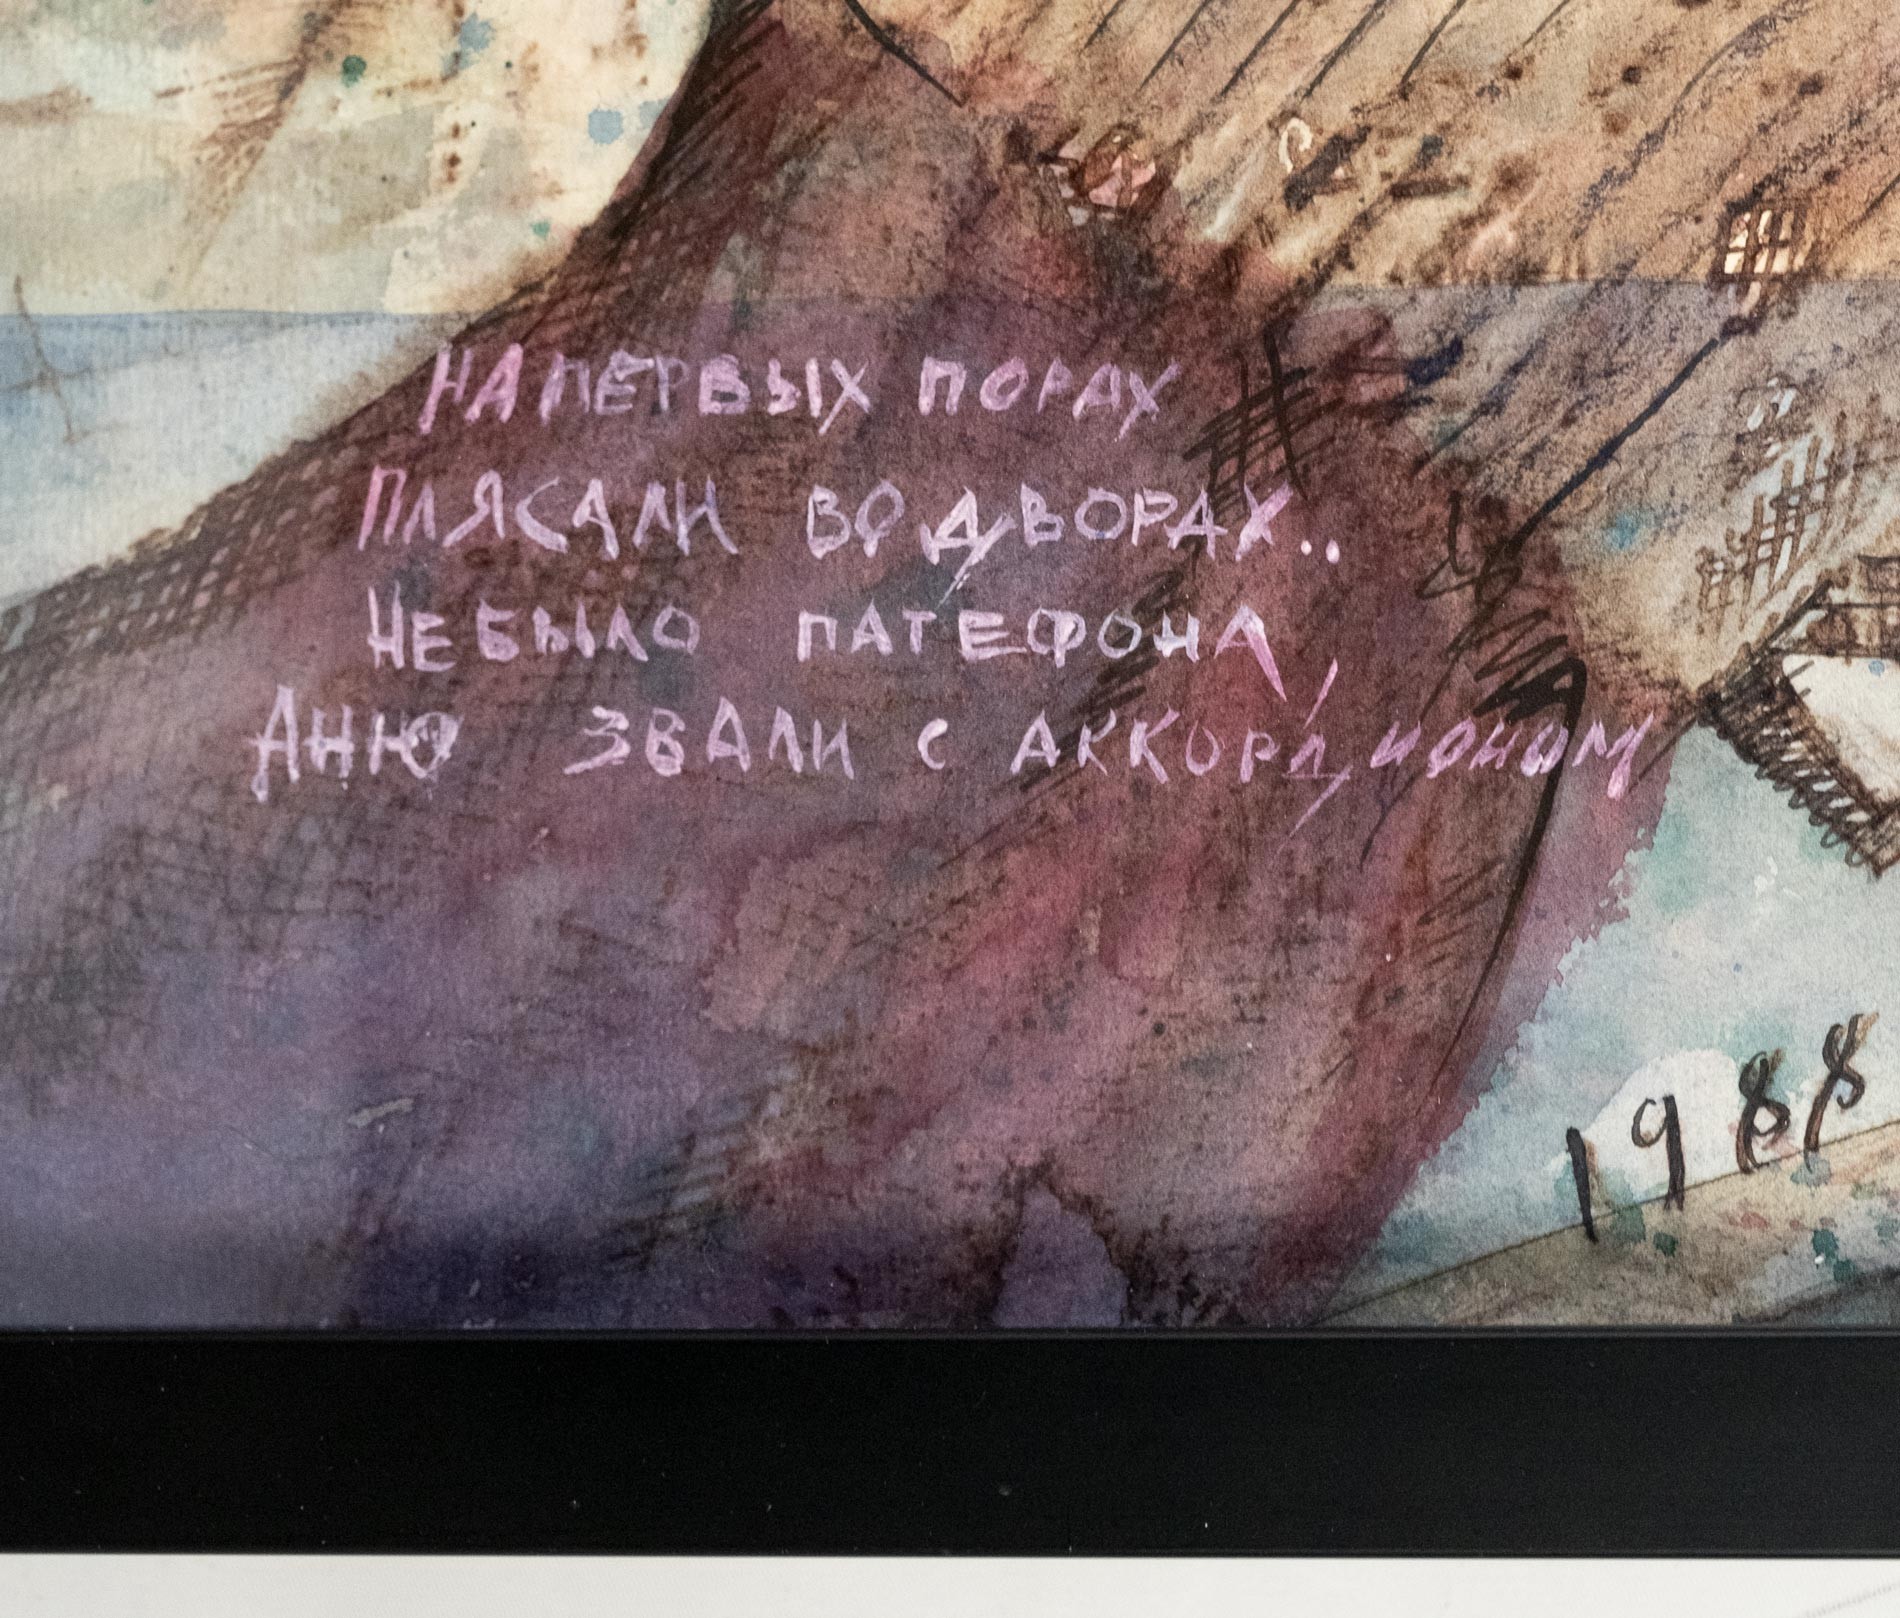 НА ПЕРВЫХ ПОРАХ
ПЛЯСАЛИ ВО ДВОРАХ..
НЕ БЫЛО ПАТЕФОНА,
АНЮ ЗВАЛИ С АККОРДИОНОМ
1988